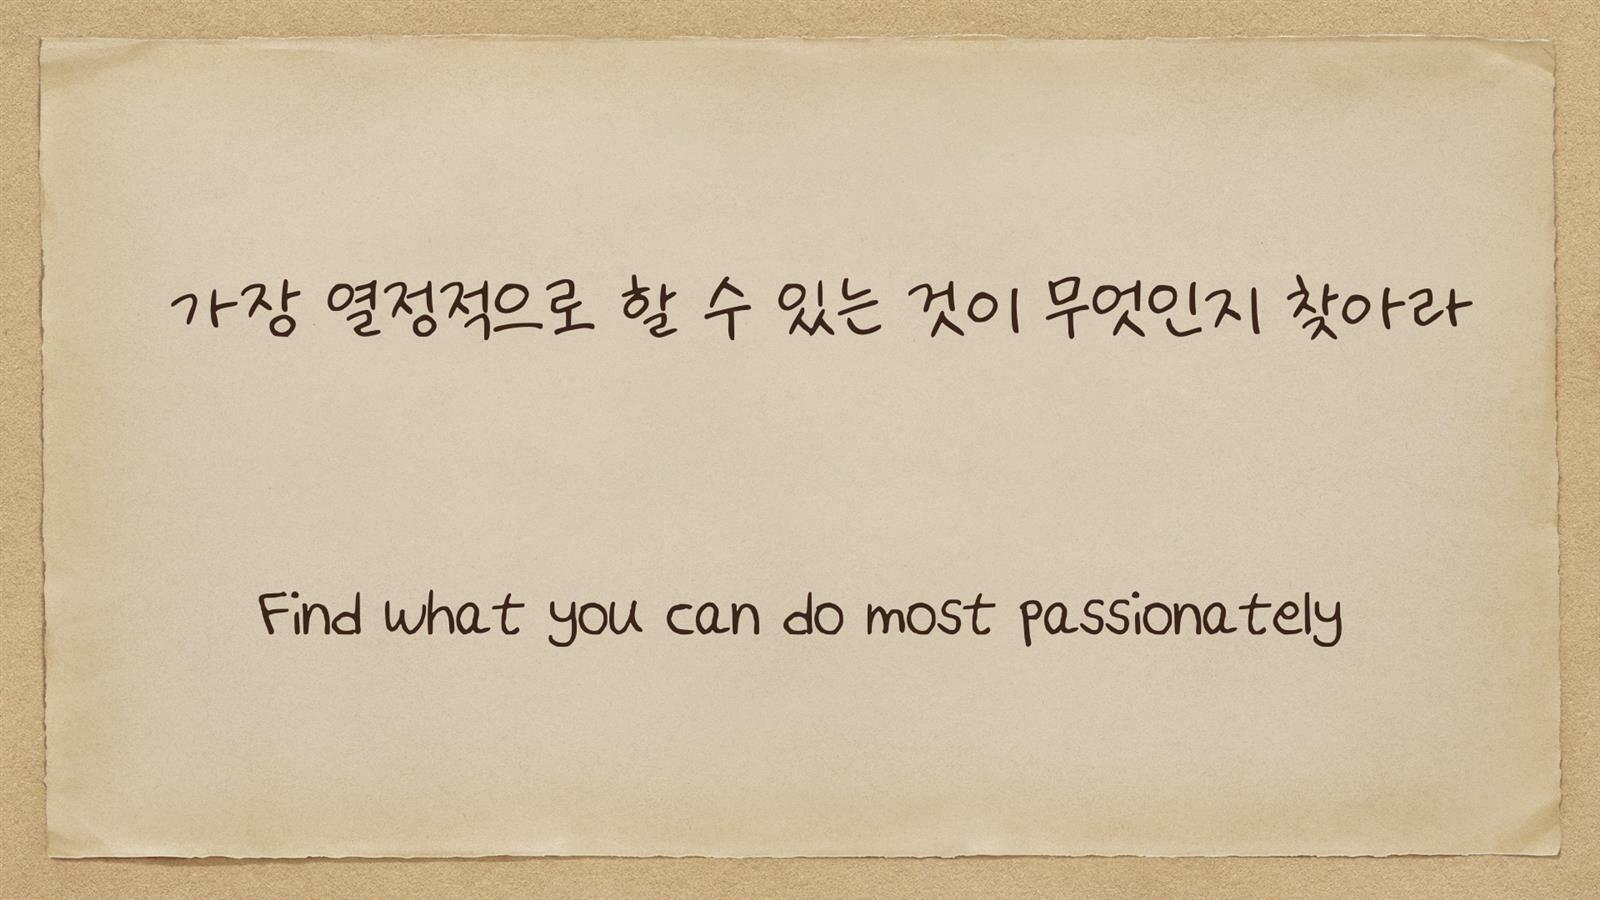 가장 열정적으로 할 수 있는 것이 무엇인지 찾아라
Find what you can do most passionately